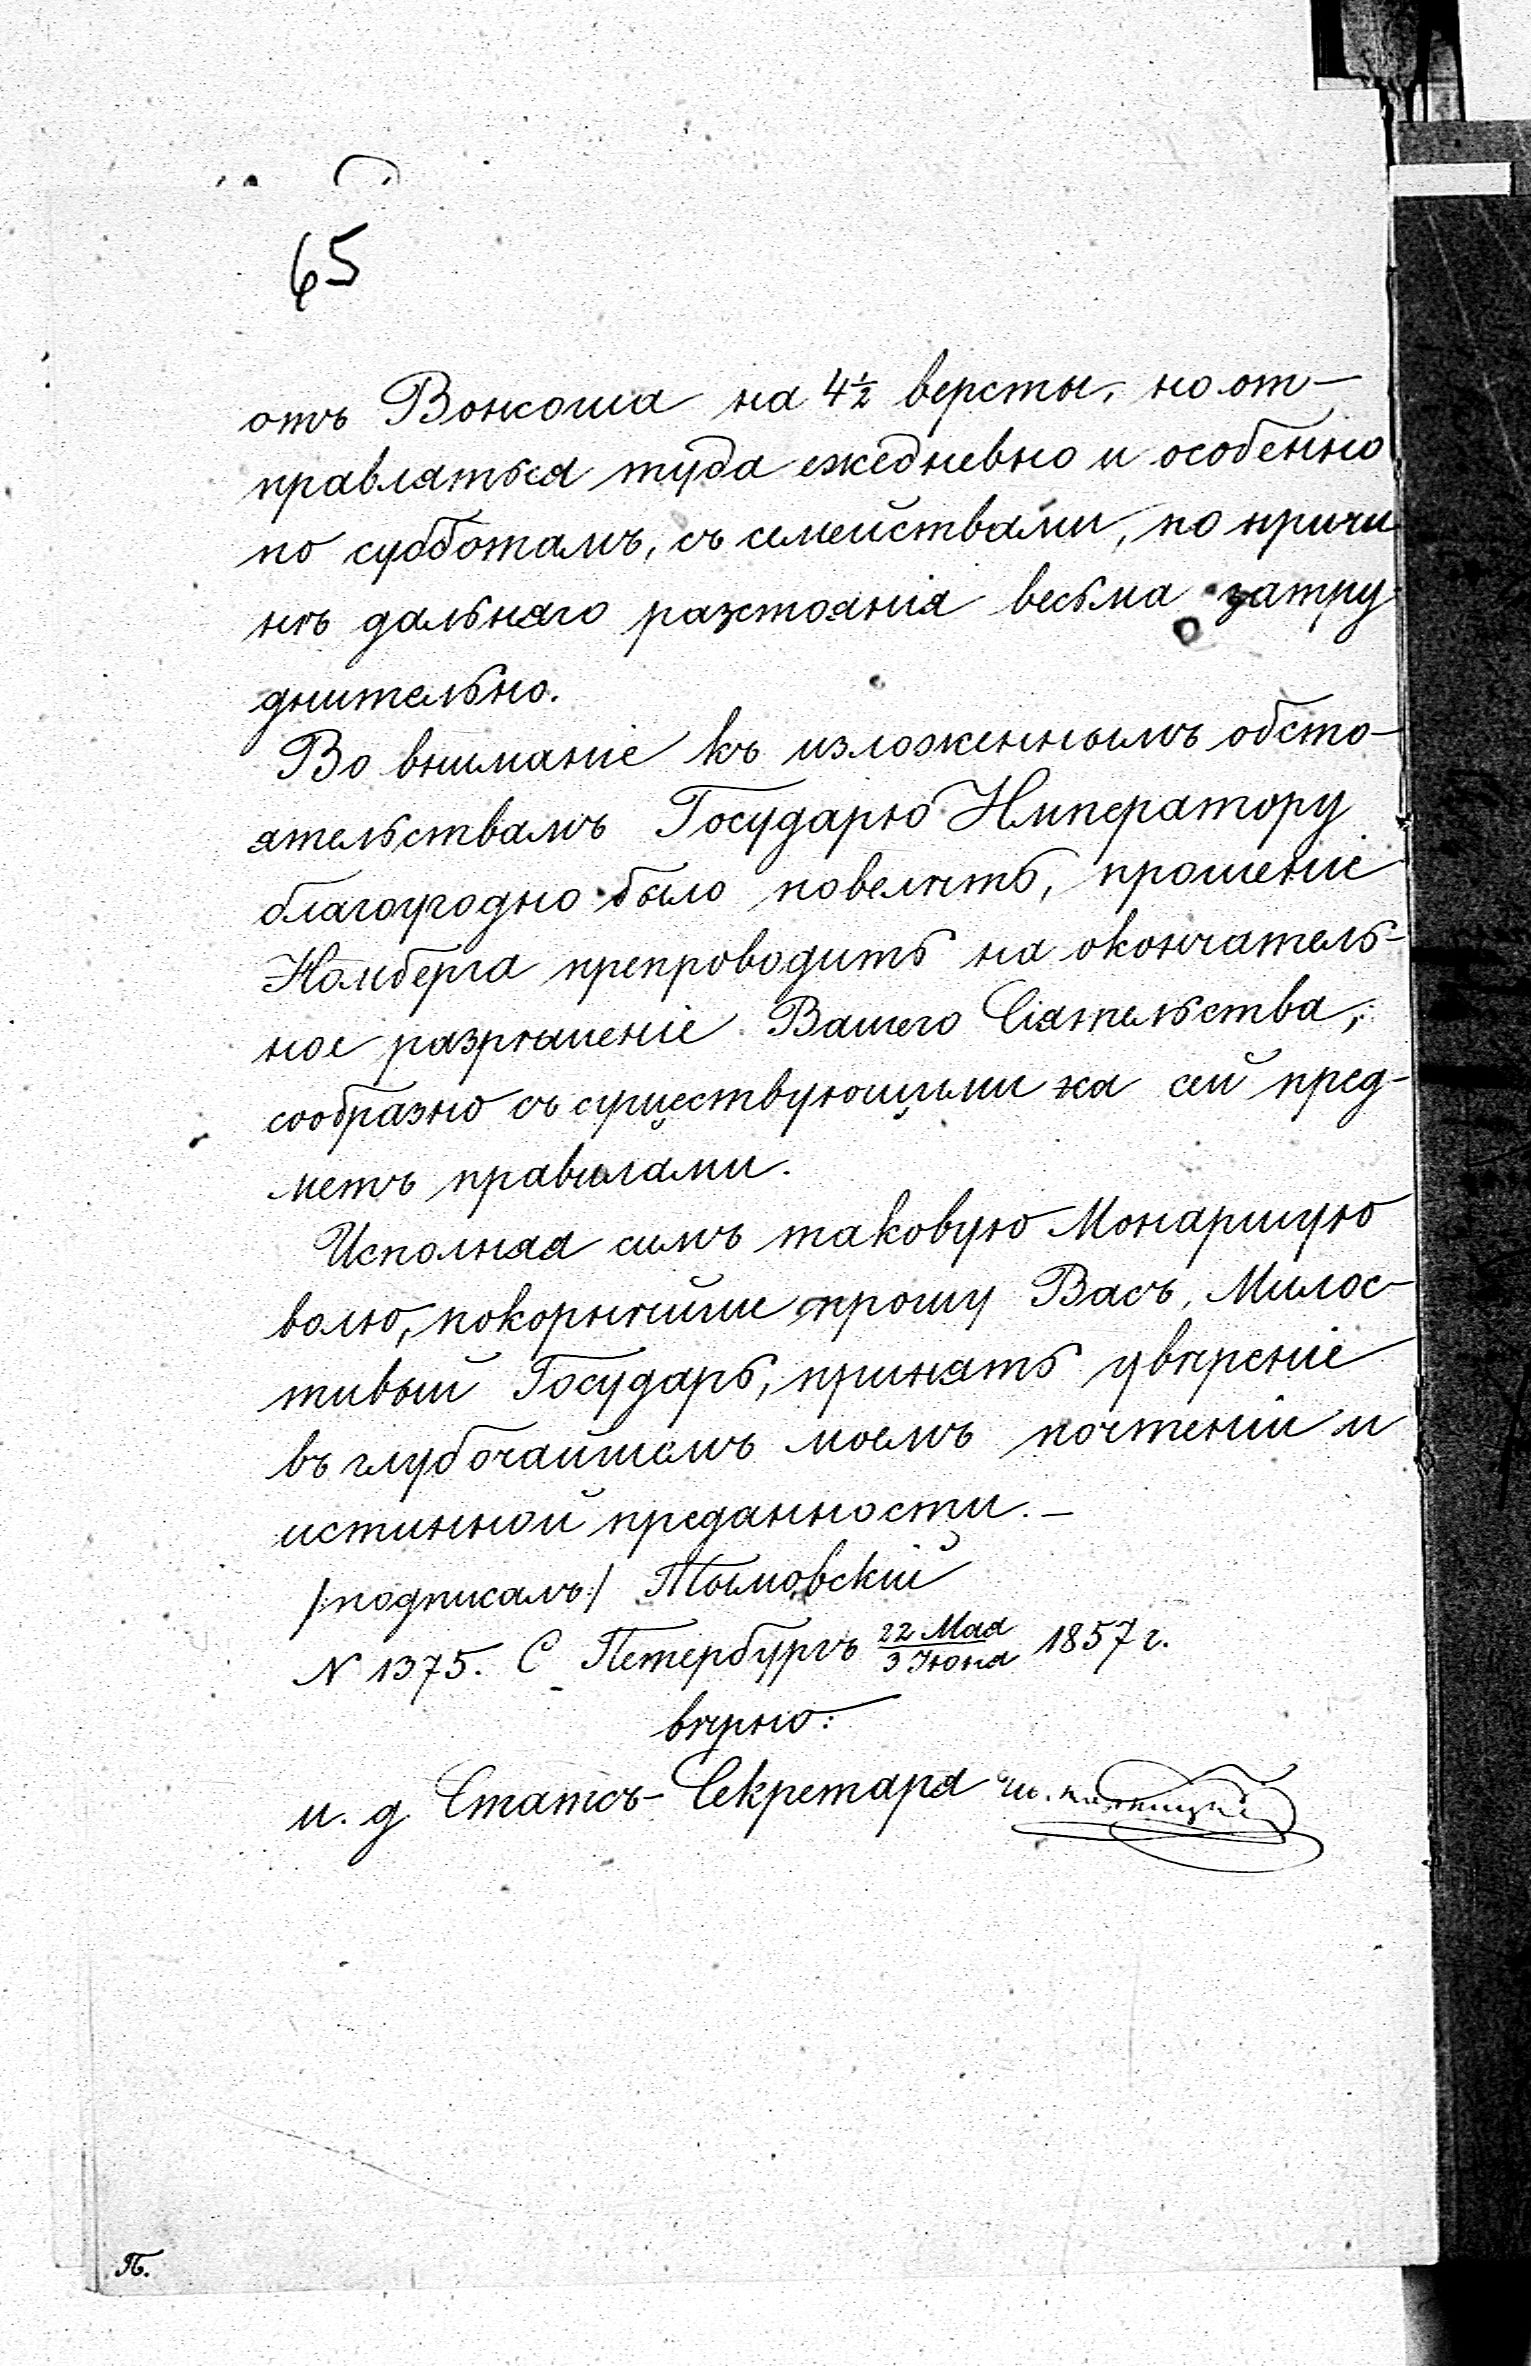 65
отъ Вонсоша на 4½ версты, но от-
правляться туда ежедневно и особенно
по субботамъ, съ семействами, по причи
нѣ дальняго разстоянія весьма затру
днительно.
Во вниманіе къ изложеннымъ обсто-
ятельствамъ Государю Императору
благоугодно было повелѣть, прошеніе
Намберга препроводить на окончатель-
ное разрѣшеніе Вашего Сіятельства,
сообразно съ существующими на сей пред-
метъ правилами.
Исполняя симъ таковую Монаршую
волю, покорнѣйше прошу Васъ, Милос-
тивый Государь, принять увѣреніе
въ глубочайшемъ моемъ почтеніи и
истинной преданности. –
/подписалъ:/ Тымовскій
N 1375. С Петербургъ 22 Мая / 3 Іюня 1857 г.
вѣрно:
и. д Статсъ-Секретаря
П.